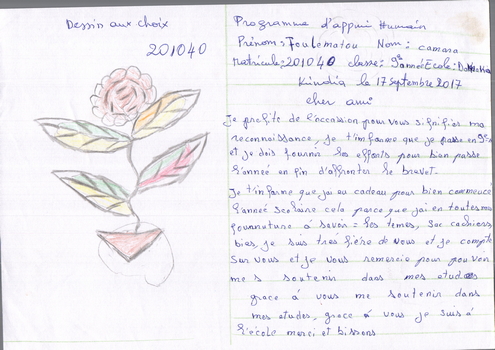 Dessin aux choix
201040
Programme d'appui Humain
Prénom: Foulematou Nom: camara
Matricule: 201040 classe: 9e année Ecole:
Kindia le 17 septembre 2017
cher ami
Je profite de l'occasion pour vous signifier ma
reconnaissance, je t'informe que je passe en 9e
et je dois fournir les efforts pour bien passe
l'année en fin d'affronter le brevet.
Je t'informe que j'ai eu cadeau pour bien commencé
l'année scolaire cela parce que j'ai en toutes ma
fourniture à savoir = les temes, sac cachiers,
bics, je suis très fière de vous et je compte
sur vous et je vous remercie pour pouvoir
me soutenir dans mes etudes
grace à vous me soutenir dans
mes etudes, grace à vous je suis à
l'école merci et bissons